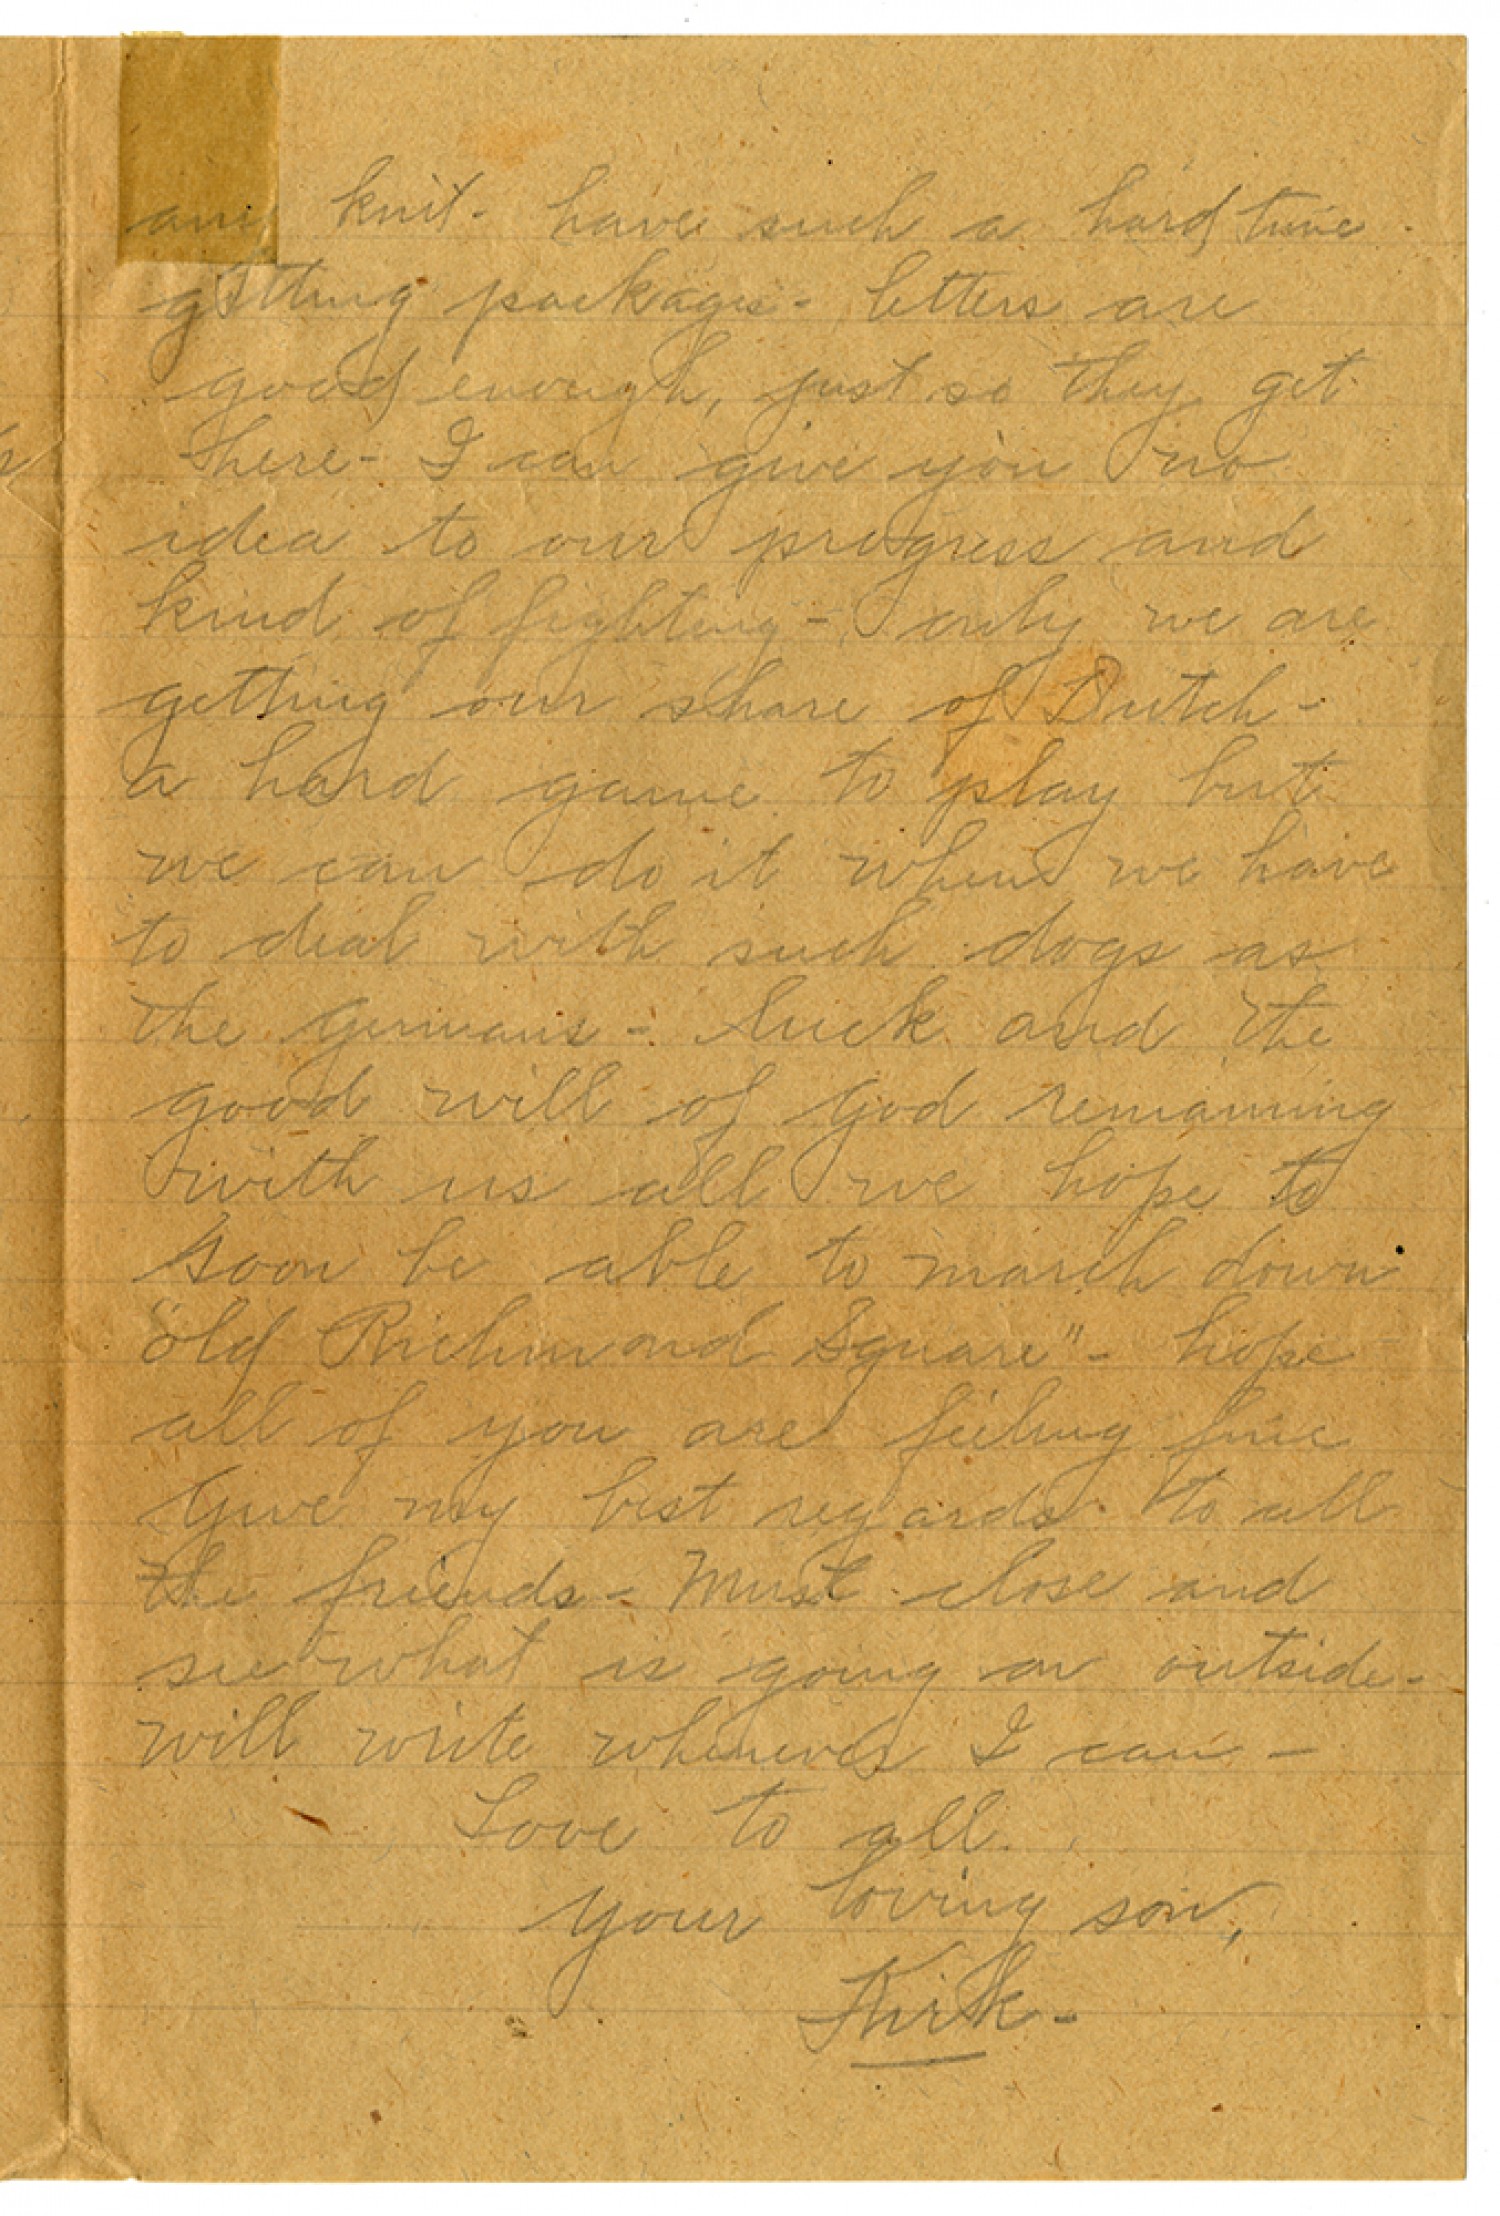 any knit - have such a hard time
getting packages - letters are
good enough, just so they get
here - I can give you no
idea to our progress and
kind of fighting - only we are
getting our share of Dutch -
a hard game to play but
we can do it when we have
to deal with such dogs as
the Germans - luck and the
good will of God remaining
with us all we hope to
soon be able to march down
"old Richmond Square" - hope
all of you are feeling fine
Give my best regards to all
the friends - Must close and
see what is going on outside -
will write whenever I can -
Love to all.
Your loving son,
Kirk -